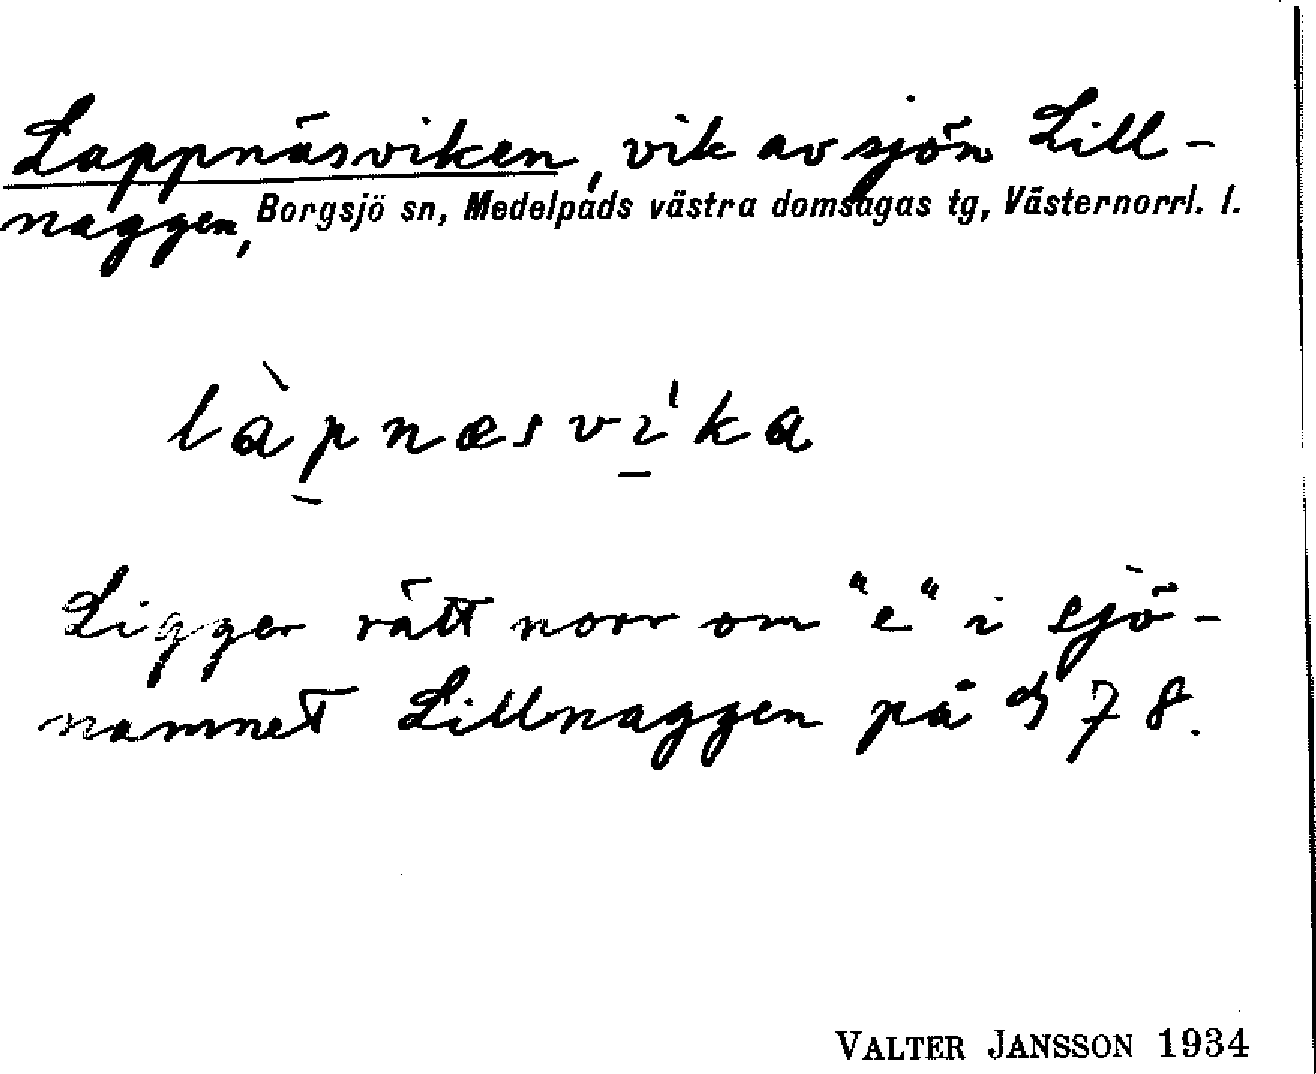 Lappnäsviken, vik av sjön Lill-
naggen, Borgsjö sn, Medelpads västra domsagas tg, Västernorrl. l.
làpnæsvi'ka
Ligger rätt norr om "e" i sjö-
namnet Lillnaggen på 78.
VALTER JANSSON 1934